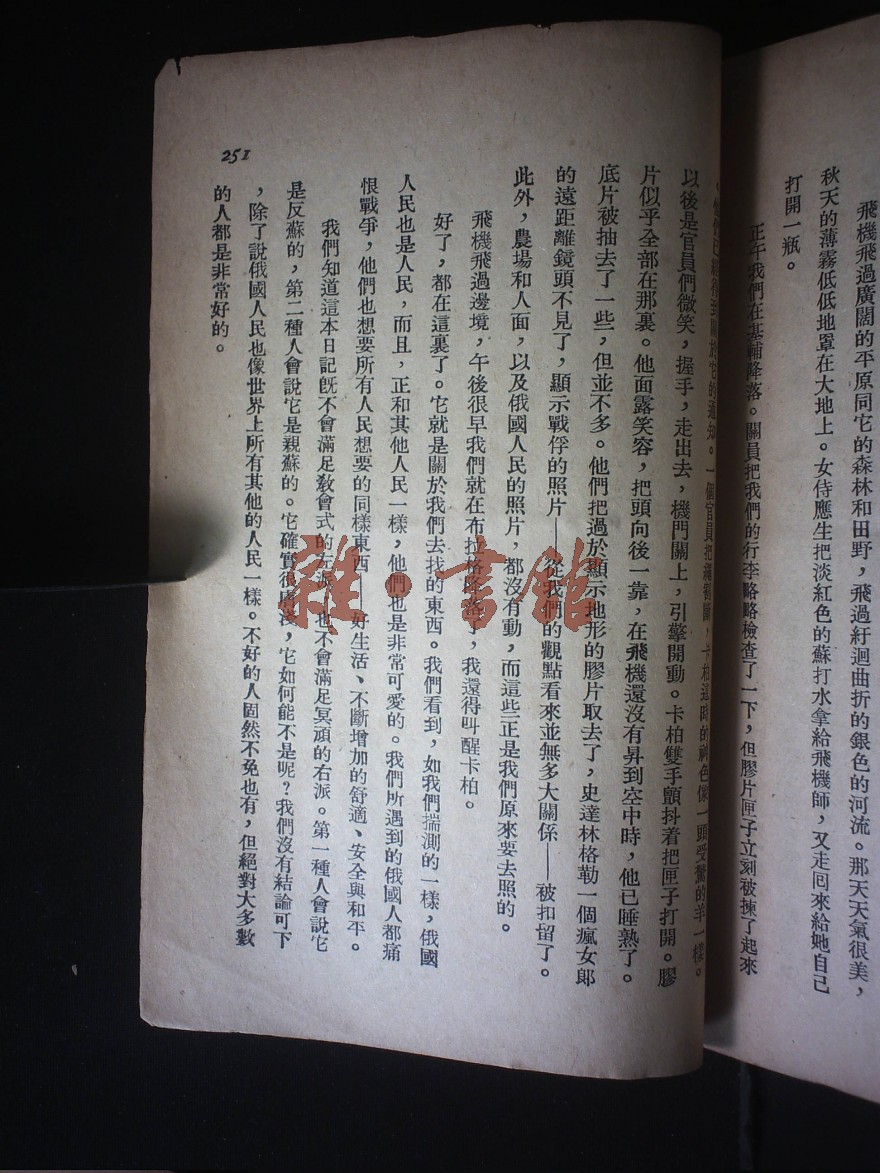 飛機飛過廣闊的平原同它的森林和田野，飛過紆迴曲折的銀色的河流。那天天氣很美，
秋天的薄霧低低地罩在大地上。女侍應生把淡紅色的蘇打水拿給飛機師，又走回來給她自己
打開一瓶。
正午我們在基輔降落。關員把我們的行李略略檢查了一下，但膠片匣子立刻被揀了起來
。已經得到關於它的通知。一個官員把繩割斷，卡柏這時的神色像一頭受驚的羊一樣。
以後是官員們微笑，握手，走出去，機門關上，引擎開動。卡柏雙手顫抖着把匣子打開。膠
片似乎全部在那裏。他面露笑容，把頭向後一靠，在飛機還沒有昇到空中時，他已睡熟了。
底片被抽去了一些，但並不多。他們把過於顯示地形的膠片取去了，史達林格勒一個瘋女郎
的遠距離鏡頭不見了，顯示戰俘的照片——從我們的觀點看來並無多大關係——被扣留了。
此外，農場和人面，以及俄國人民的照片，都沒有動，而這些正是我們原來要去照的。
飛機飛過邊境，午後很早我們就在布拉格降落了，我還得叫醒卡柏。
好了，都在這裏了。它就是關於我們去找的東西。我們看到，如我們揣測的一樣，俄國
人民也是人民，而且，正和其他人民一樣，他們也是非常可愛的。我們所遇到的俄國人都痛
恨戰爭，他們也想要所有人民想要的同樣東西——好生活、不斷增加的舒適、安全與和平。
我們知道這本日記旣不會滿足敎會式的左派，也不會滿足冥頑的右派。第一種人會說它
是反蘇的，第二種人會說它是親蘇的。它確實很膚淺，它如何能不是呢？我們沒有結論可下
，除了說俄國人民也像世界上所有其他的人民一樣。不好的人固然不免也有，但絕對大多數
的人都是非常好的。
251
雜·書館